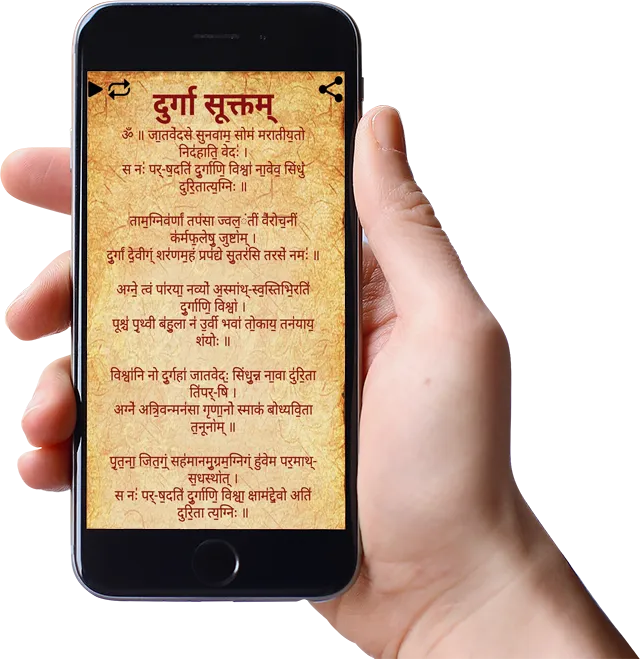 दुर्गा सूक्तम्
ॐ ॥ जा॒तवे॑दसे सुनवाम॒ सोम॑ मरातीय॒तो
निद॑हाति॒ वेदः॑ ।
स नः॑ पर्-ष॒दति॑ दु॒र्गाणि॒ विश्वा॑ ना॒वेव॒ सिंधुं॑
दुरि॒तात्य॒ग्निः ॥
ताम॒ग्निव॑र्णां॒ तप॑सा ज्वल॒ंतीं वै॑रोच॒नीं
क॑र्मफ॒लेषु॒ जुष्टा᳚म् ।
दु॒र्गां दे॒वीग्ं शर॑णम॒हं प्रप॑द्ये सु॒तर॑सि तरसे॑ नमः॑ ॥
अग्ने॒ त्वं पा॑रया॒ नव्यो॑ अ॒स्मांथ्-स्व॒स्तिभि॒रति॑
दु॒र्गाणि॒ विश्वा᳚ ।
पूश्च॑ पृ॒थ्वी ब॑हु॒ला न॑ उ॒र्वी भवा॑ तो॒काय॒ तन॑याय॒
शंयोः ॥
विश्वा॑नि नो दु॒र्गहा॑ जातवेदः॒ सिंधु॒न्न ना॒वा दु॑रि॒ता
ति॑पर्-षि ।
अग्ने॑ अत्रि॒वन्मन॑सा गृणा॒नो᳚ स्माकं॑ बोध्यवि॒ता
त॒नूना᳚म् ॥
पृ॒त॒ना॒ जित॒ग्ं॒ सह॑मानमु॒ग्रम॒ग्निग्ं हु॑वेम पर॒माथ्-
स॒धस्था᳚त् ।
स नः॑ पर्-ष॒दति॑ दु॒र्गाणि॒ विश्वा॒ क्षाम॑द्दे॒वो अति॑
दुरि॒ता त्य॒ग्निः ॥